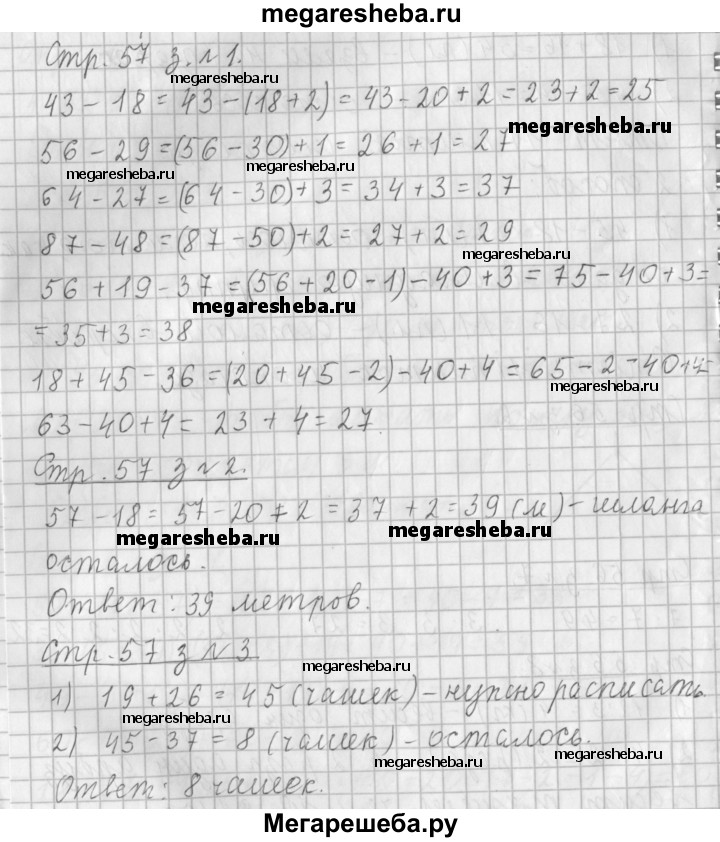 megaresheba.ru
Стр. 57 з. №1.
megaresheba.ru
43 - 18 = 43 - (18+2) = 43 - 20 + 2 = 23 + 2 = 25
megaresheba.ru
56 - 29 = (56 - 30) + 1 = 26 + 1 = 27
megaresheba.ru megaresheba.ru
64 - 27 = (64 - 30) + 3 = 34 + 3 = 37
87 - 48 = (87 - 50) + 2 = 27 + 2 = 29
megaresheba.ru
56 + 19 - 37 = (56 + 20 - 1) - 40 + 3 = 75 - 40 + 3 =
megaresheba.ru
= 35 + 3 = 38
18 + 45 - 36 = (20 + 45 - 2) - 40 + 4 = 65 - 2 - 40 + 4 =
megaresheba.ru
63 - 40 + 4 = 23 + 4 = 27
Стр. 57 з №2.
57 - 18 = 57 - 20 + 2 = 37 + 2 = 39 (м) - шланга
megaresheba.ru megaresheba.ru
осталось.
Ответ: 39 метров.
Стр. 57 з №3
megaresheba.ru
1) 19 + 26 = 45 (чашек) - нужно расписать.
megaresheba.ru
2) 45 - 37 = 8 (чашек) - осталось.
megaresheba.ru
Ответ: 8 чашек.
Мегарешеба.ру